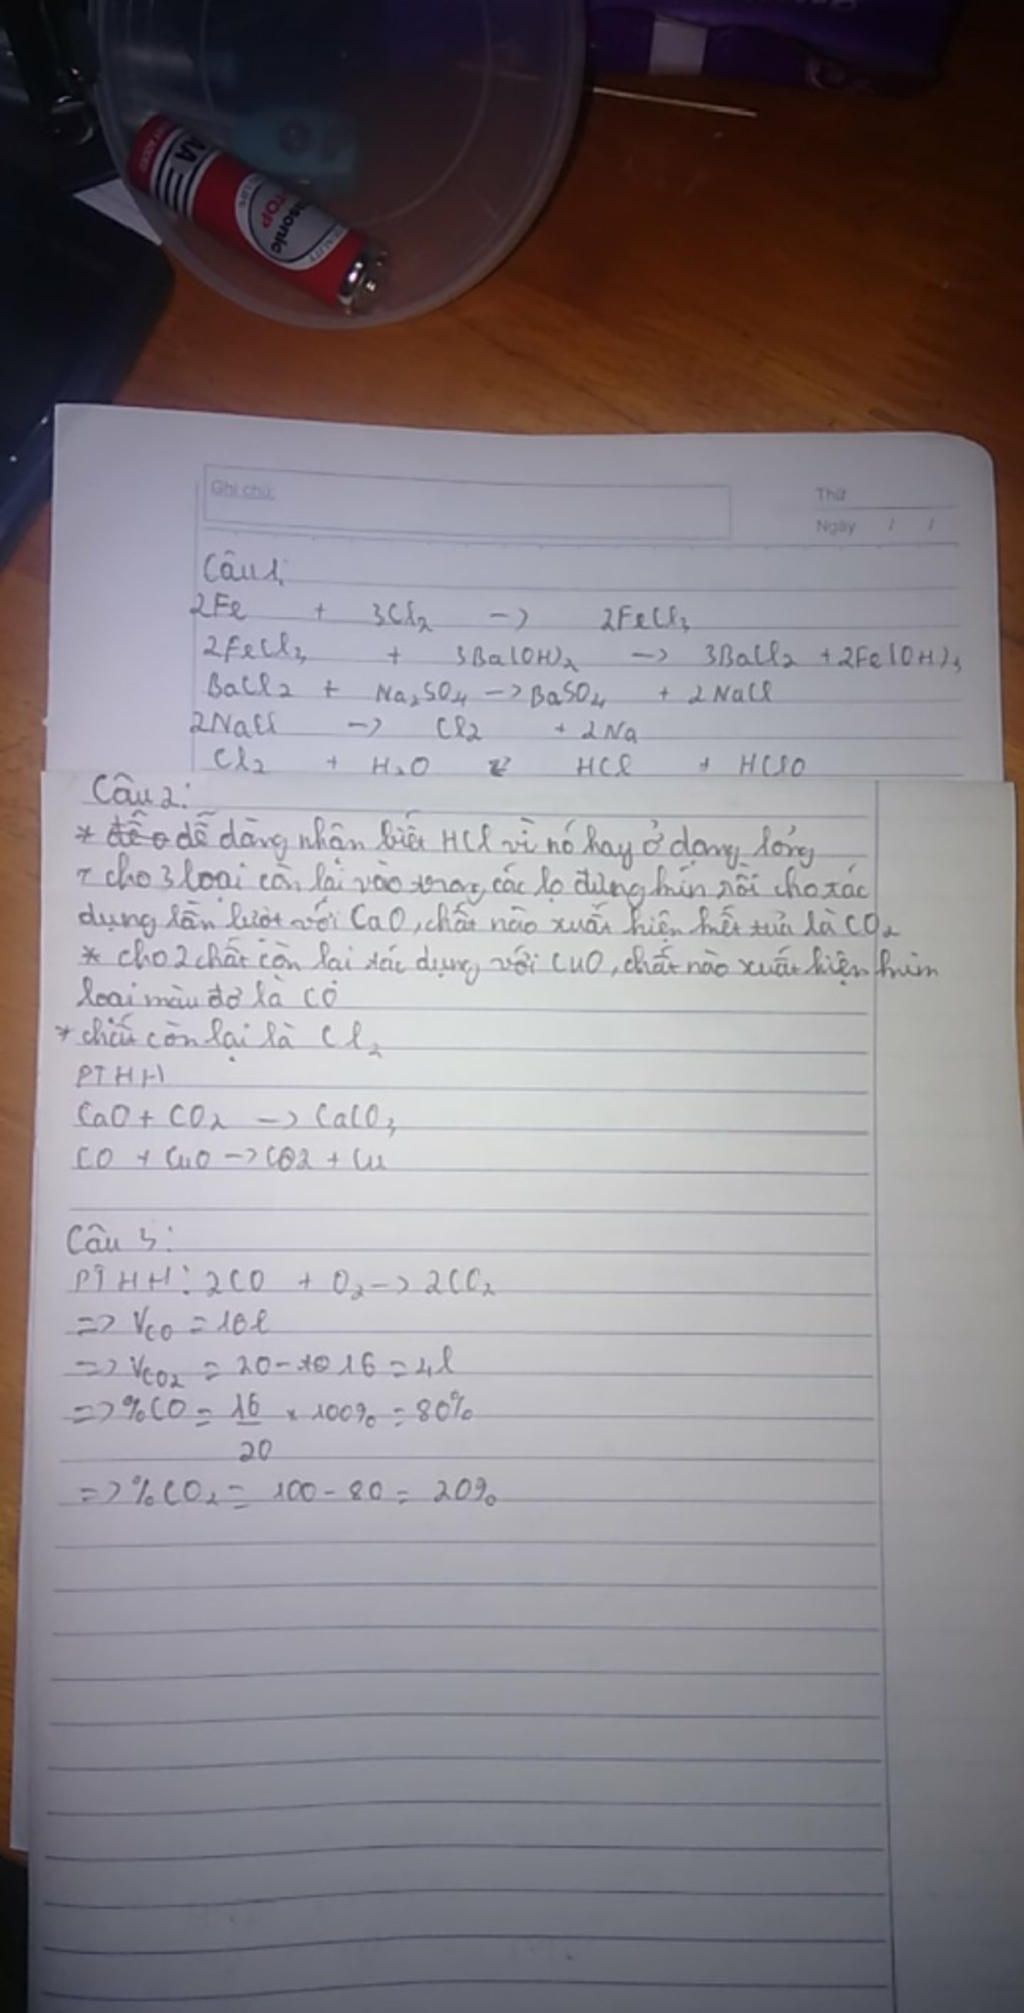 AA
TOP
asonic
Ghi chú:
Thứ
Ngày / /
Câu 1:
2Fe + 3Cl2 -> 2FeCl3
2FeCl3 + 3Ba(OH)2 -> 3BaCl2 + 2Fe(OH)3
BaCl2 + Na2SO4 -> BaSO4 + 2NaCl
2NaCl -> Cl2 + 2Na
Cl2 + H2O HCl + HClO
Câu 2:
* dễ dàng nhận biết HCl vì nó hay ở dạng lỏng
cho 3 loại còn lại vào trong các lọ đựng kín rồi cho tác
dụng lần lượt với CaO, chất nào xuất hiện kết tủa là CO2
* cho 2 chất còn lại tác dụng với CuO, chất nào xuất hiện kim
loại màu đỏ là CO
* chất còn lại là Cl2
PTHH
CaO + CO2 -> CaCO3
CO + CuO -> CO2 + Cu
Câu 3:
PTHH: 2CO + O2 -> 2CO2
=> VCO = 16l
=> VCO2 = 20 - 16 = 4l
=> %CO = 16/20 x 100% = 80%
=> %CO2 = 100 - 80 = 20%